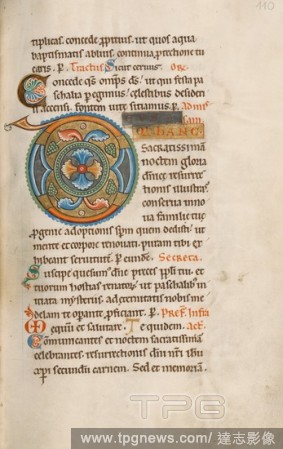 110
tiplicas. concede propitius. ut quos aqua
baptismatis abluis. continua protectione tu
earis. P. Tractus Sicut cervus. Or.
Concede qs omps ds. ut qui festa pa
schalia peragimus. celestibus desideri
is accensi. fontem vite sitiamus. P. Ad mis
sam
S HANC
sacratissimā
noctem gloria
dnice resurrec
tionis illustras.
conserva in no
va familie tue
progenie adoptionis spm quem dedisti. ut
mente et corpore renovati. puram tibi ex
hibeant servitutem. P. eunde. Secreta.
Suscipe quesumus dne preces ppli tui. et
ut paschalib; in
itiata mysteriis ad eternitatis nobis me
delam te operante proficiant. P. Pref. Infra
et salutare. Te quidem. Act.
Communicantes et noctem sacratissimā
celebrantes. resurrectionis dni nri ihu
xpi secundū carnem. Sed et memoriam.
TPG
www.tpgnews.com/達志影像